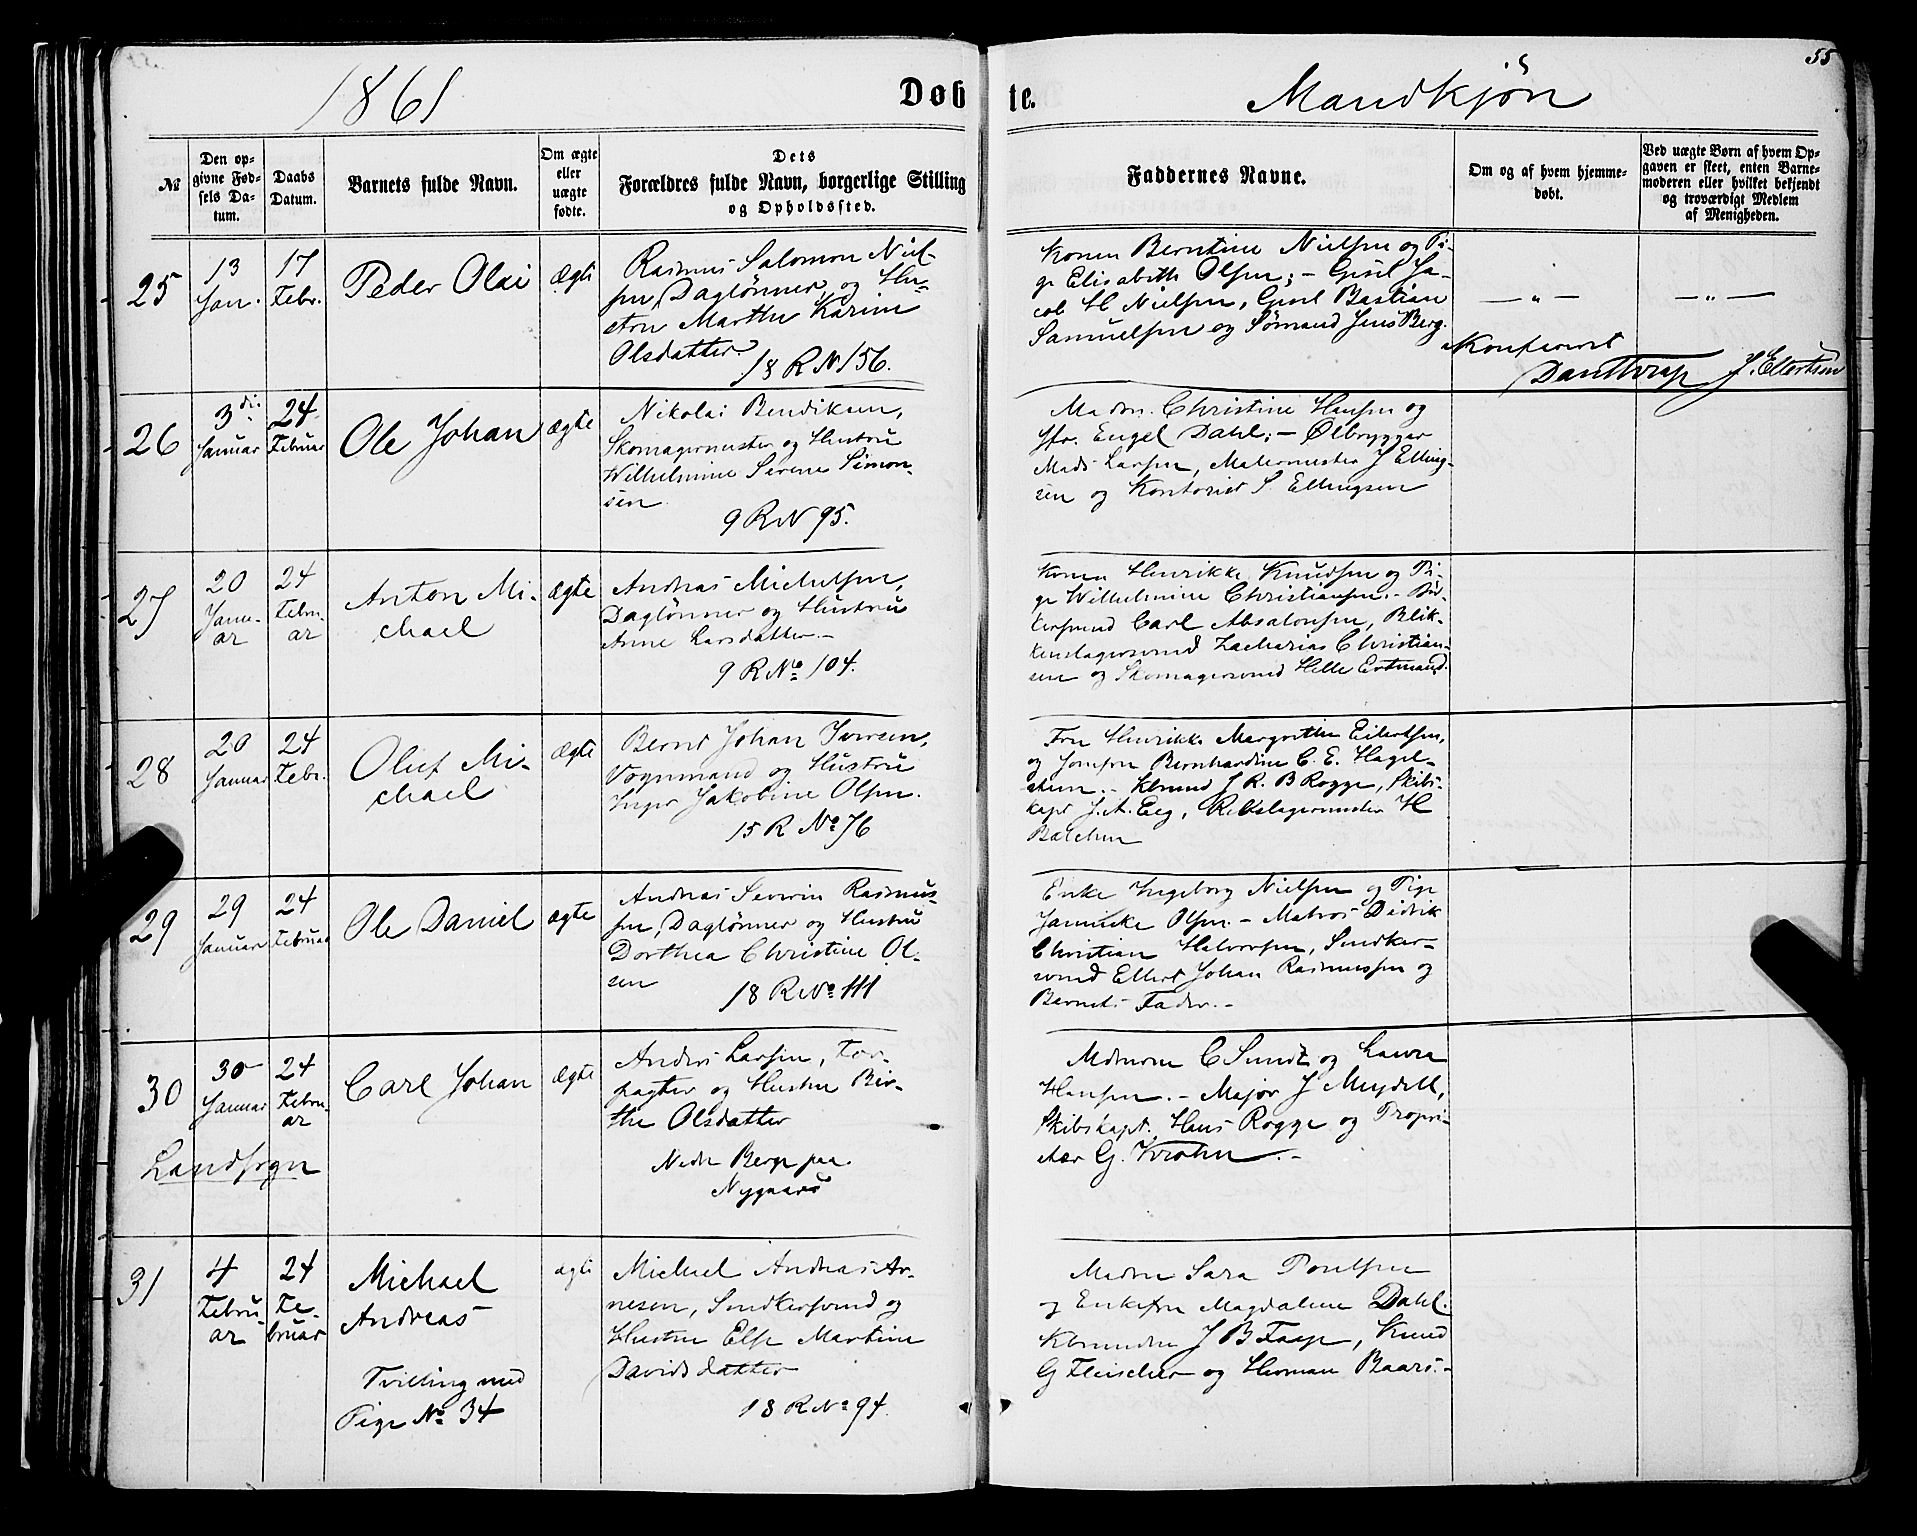 55
1861
Døbte.
Mandkjön
№
Den opgivne Fødsels Datum.
Daabs Datum.
Barnets fulde Navn.
Om ægte eller uægte fødte.
Dets Forældres fulde Navn, borgerlige Stilling og Opholdssted.
Faddernes Navne.
Om og af hvem hjemmedøbt.
Ved uægte Børn af hvem Opgaven er skeet, enten Barnemoderen eller hvilket bekjendt og troværdigt Medlem af Menigheden.
25
13 Jan.
17 Febr.
Peder Olai
Ægte
Rasmus Salomon Niel-
sen, Daglönner og Hu-
stru Marthe Karine
Olsdatter.
18 R N 156.
Konen Berntine Nielsen og Pi-
ge Elisabeth Olsen; – Gisel Ja-
cob H Nielsen, Gisel Bastian
Samuelsen og Sömand Jens Berg.
— „ —
— „ —
Konfereret
Danthrap J. Ellertsen
26
3die Januar
24 Februar
Ole Johan
ægte
Nikolai Bendiksen,
Skomagermester og Hustru
Wilhelmine Serene Simon-
sen
9 R N 95.
Madm. Christine Hansen og
Jfr. Engel Dahl; – Ølbrygger
Mads Larsen, Malermester J Elling-
sen og Kontorist S. Ellingsen
27
20 Janu-
ar
24 Febru-
ar
Anton Mi-
chael
ægte
Andreas Michelsen,
Daglönner og Hustru
Anne Larsdatter. –
9 R No 104.
Konen Henrikke Knudsen og Pi-
ge Wilhelmine Christiansen. –
Carl Absalonsen, Blik-
kenslagersvend Zacharias Christian-
sen og Skomagersvend Helle Ertmand.
28
20 Januar
24 Febr.
Oluf Mi-
chael
Ægte
Bernt Johan Iversen,
Vognmand og Hustru
Inger Jakobine Olsen.
15 R No 76
Fru Henrikke Margrethe Eilertsen,
og Jomfru Bernhardine C. E. Hagel-
steen. – Kbmnd J R. B Rogge, Skibs-
kapt J. A. Eeg, Rebslagermester H
Balchen
29
29 Januar
24 Februar
Ole Daniel
ægte
Andreas Severin Rasmus-
sen, Daglönner og Hustru
Dorthea Christine Ol-
sen
18 R No 111
Enke Ingeborg Nielsen og Pige
Jannicke Olsen. – Matros Didrik
Christian Halvorsen, Snedker-
svend Ellert Johan Rasmussen og
Barnets Fader. –
30
30 Januar
24 Febru-
ar
Carl Johan
Ægte
Anders Larsen, For-
pagter og Hustru Bir-
the Olsdatter
Nedre Berge paa
Nygaard
Landsogn
Mdmerne C Sundt og Laura
Hansen. – Major J Meydell,
Skibskapt. Hans Rogge og Propri-
etær G. Krohn. –
31
4 Febru-
ar
24 Fe-
bruar
Michael
Andreas
ægte
Michael Andreas Ar-
nesen, Snedkersvend og
Hustru Else Martine
Davidsdatter
18 R No 94.
Tvilling med
Pige No 34
Madm Sara Poulsen
og Enkefru Magdalene Dahl.
Kbmndene J B Faye, Knud
G Fleischer og Herman Baars. –